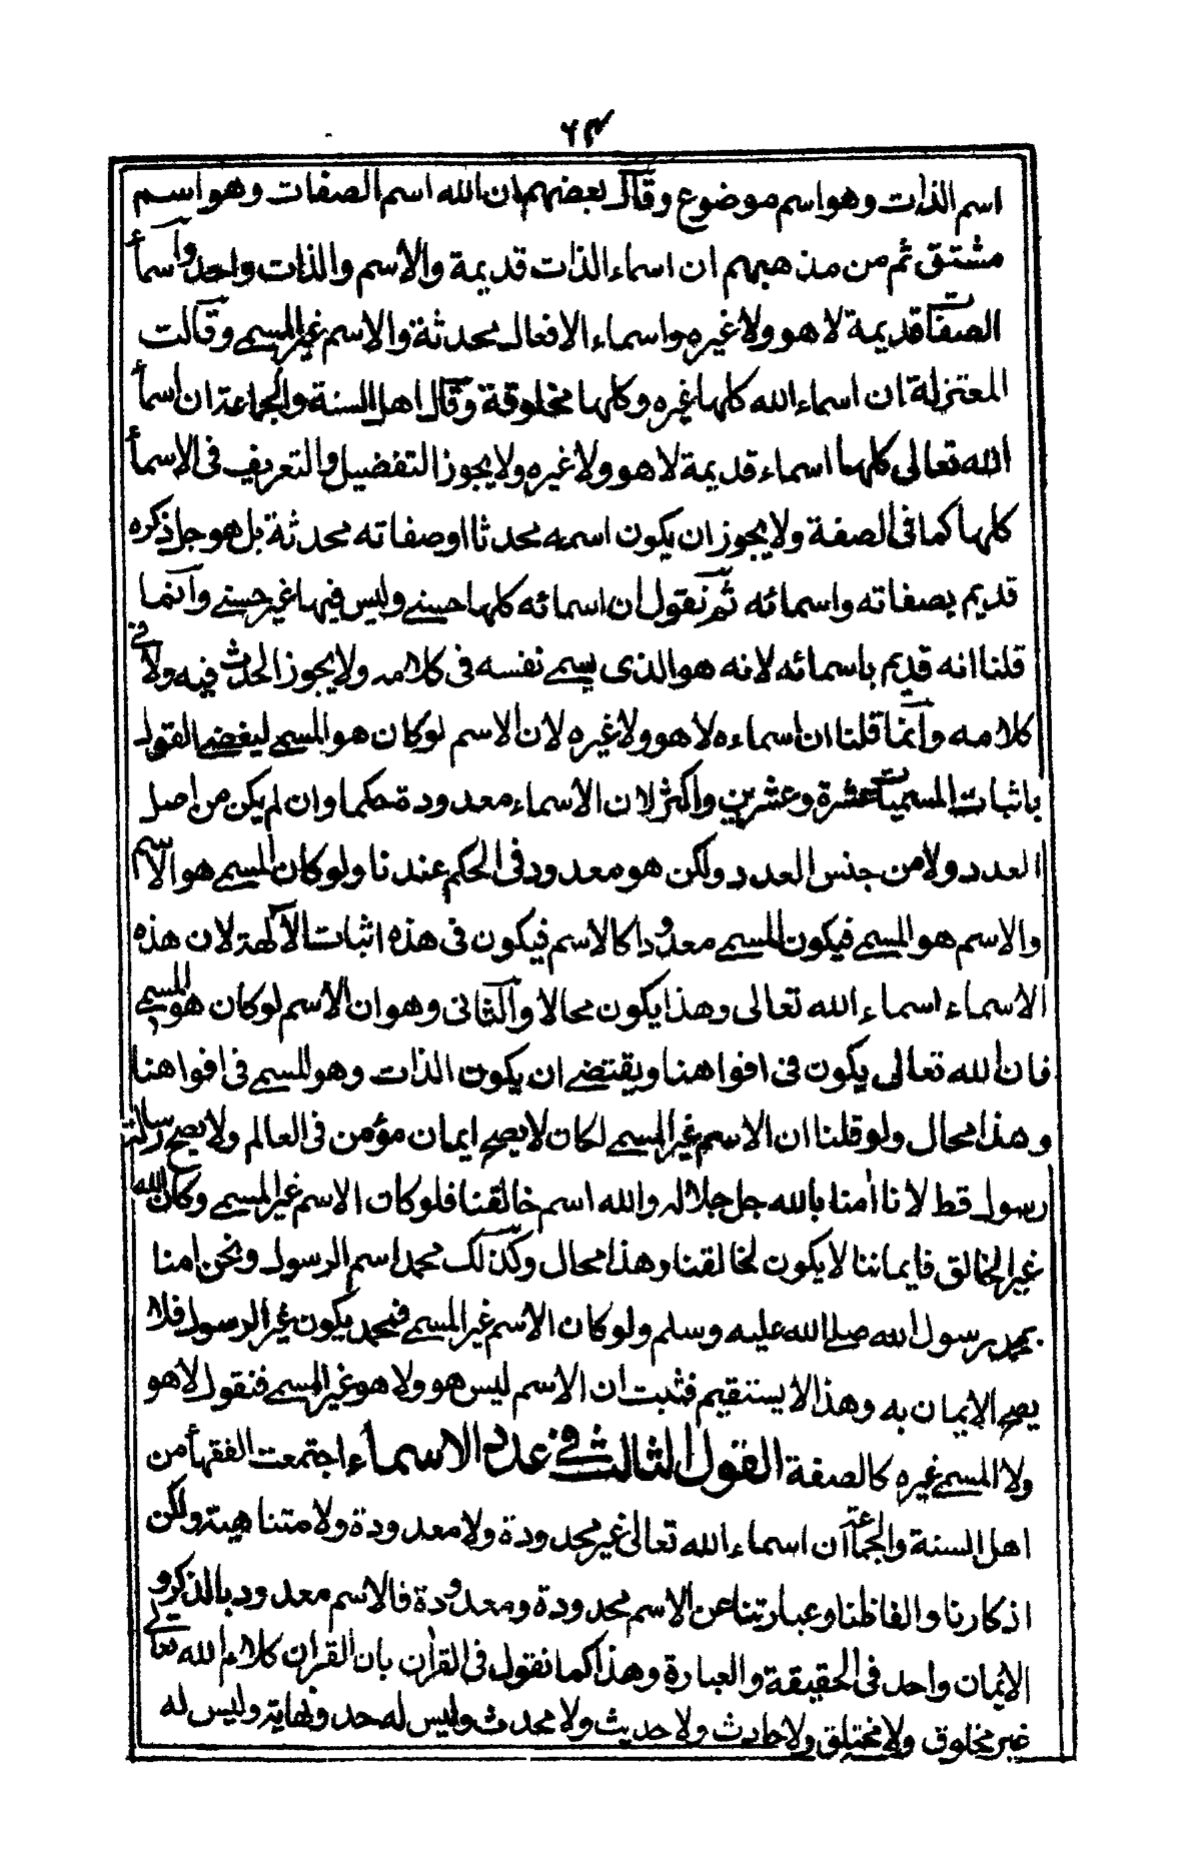 ٦٣
اسم الذات وهو اسم موضوع وقال بعضهم ان الله اسم الصفات وهو اسم
مشتق ثم من مذهبهم ان اسماء الذات قديمة والاسم والذات واحد واسمأ
الصفات قديمة لا هو ولا غيره واسماء الافعال محدثة والاسم غير المسمى وقالت
المعتزلة ان اسماء الله كلها غيره وكلها مخلوقة وقال اهل السنة والجماعة ان اسمأ
الله تعالى كلها اسماء قديمة لا هو ولا غيره ولا يجوز التفضيل والتعريف فى الاسمأ
كلها كما فى الصفة ولا يجوز ان يكون اسمه محدثا او صفاته محدثة بل هو جل ذكره
قديم بصفاته واسمائه ثم نقول ان اسمائه كلها حسنى وليس فيها غير حسنى وانما
قلنا انه قديم باسمائه لانه هو الذى يسمى نفسه فى كلامه ولا يجوز الحدث فيه ولا فى
كلامه وانما قلنا ان اسماءه لا هو ولا غيره لان الاسم لو كان هو المسمى ليفضى القول
باثبات المسميات عشرة وعشرين واكثر لان الاسماء معدودة حكما وان لم يكن من اصل
العدد ولا من جنس العدد ولكن هو معدود فى الحكم عندنا ولو كان المسمى هو الاسم
والاسم هو المسمى فيكون المسمى معدودا كالاسم فيكون فى هذه اثبات الآلهة لان هذه
الاسماء اسماء الله تعالى وهذا يكون محالا والثانى وهو ان الاسم لو كان هو المسمى
فان الله تعالى يكون فى افواهنا ويقتضى ان يكون الذات وهو المسمى فى افواهنا
وهذا محال ولو قلنا ان الاسم غير المسمى لكان لا يصح ايمان مؤمن فى العالم ولا يصح رسالة
رسول قط لانا امنا بالله جل جلاله والله اسم خالقنا فلو كان الاسم غير المسمى وكان الله
غير الخالق فايماننا لا يكون لخالقنا وهذا محال وكذلك محمد اسم الرسول ونحن امنا
بمحمد برسول الله صلى الله عليه وسلم ولو كان الاسم غير المسمى فمحمد يكون غير الرسول فلا
يصح الايمان به وهذا لا يستقيم فثبت ان الاسم ليس هو ولا هو غير المسمى فنقول لا هو
ولا المسمى غيره كالصفة القول الثالث فى عدد الاسماء اجتمعت الفقهأ من
اهل السنة والجماعة ان اسماء الله تعالى غير محدودة ولا معدودة ولا متناهية ولكن
اذكارنا والفاظنا وعبارتنا عن الاسم محدودة ومعدودة فالاسم معدود بالذكر و
الايمان واحد فى الحقيقة والعبارة وهذا كما نقول فى القرأن بان القران كلام الله تعالى
غير مخلوق ولا مختلق ولا حادث ولا حديث ولا محدث وليس له حد ونهاية وليس له